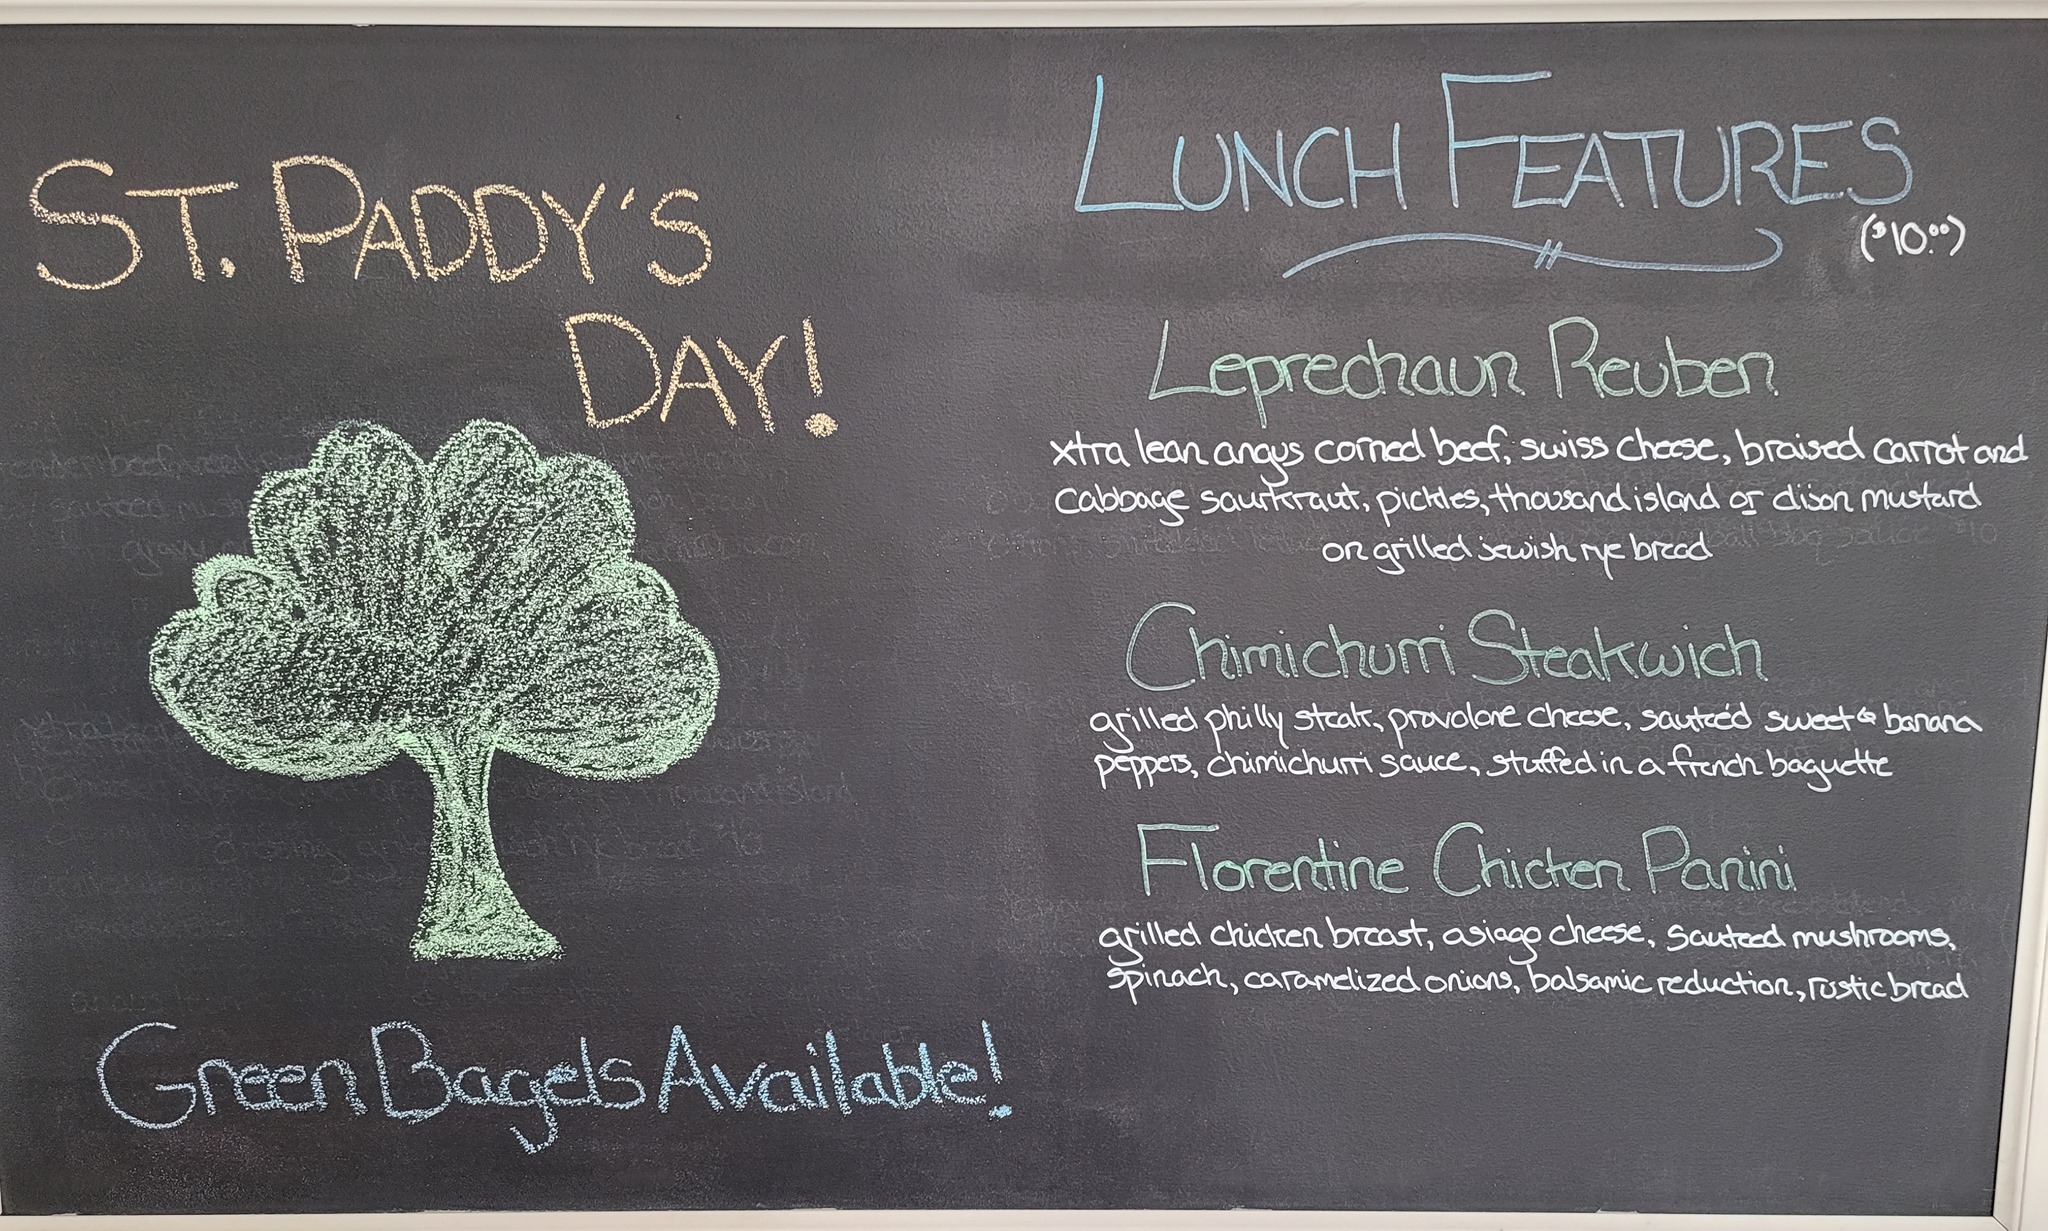 ST. PADDY'S
DAY!
Green Bagels Available!
LUNCH FEATURES
($10.00)
Leprechaun Reuben
xtra lean angus corned beef, swiss cheese, braised carrot and
cabbage saurkraut, pickles, thousand island or dijon mustard
on grilled jewish rye bread
Chimichurri Steakwich
grilled philly steak, provolone cheese, sauteéd sweet & banana
peppers, chimichurri sauce, stuffed in a french baguette
Florentine Chicken Panini
grilled chicken breast, asiago cheese, sauteed mushrooms,
spinach, caramelized onions, balsamic reduction, rustic bread